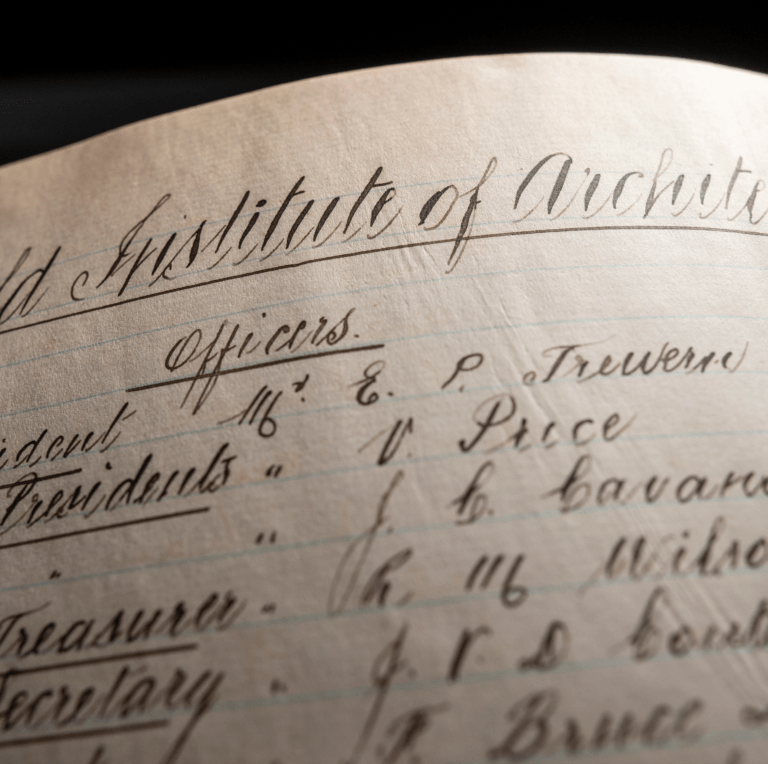 ld Institute of Archite
Officers.
ident Mr. E. P. Trewern
Presidents " V. Price
" " J. C. Cavana
Treasurer " R. M Wilso
Secretary " J. V. D Coutt
F. Bruce